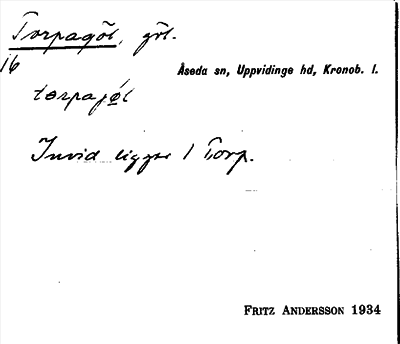 Torpagöl, göl.
16
Åseda sn, Uppvidinge hd, Kronob. l.
tørpajǿl
Invid ligger 1 Torp.
FRITZ ANDERSSON 1934